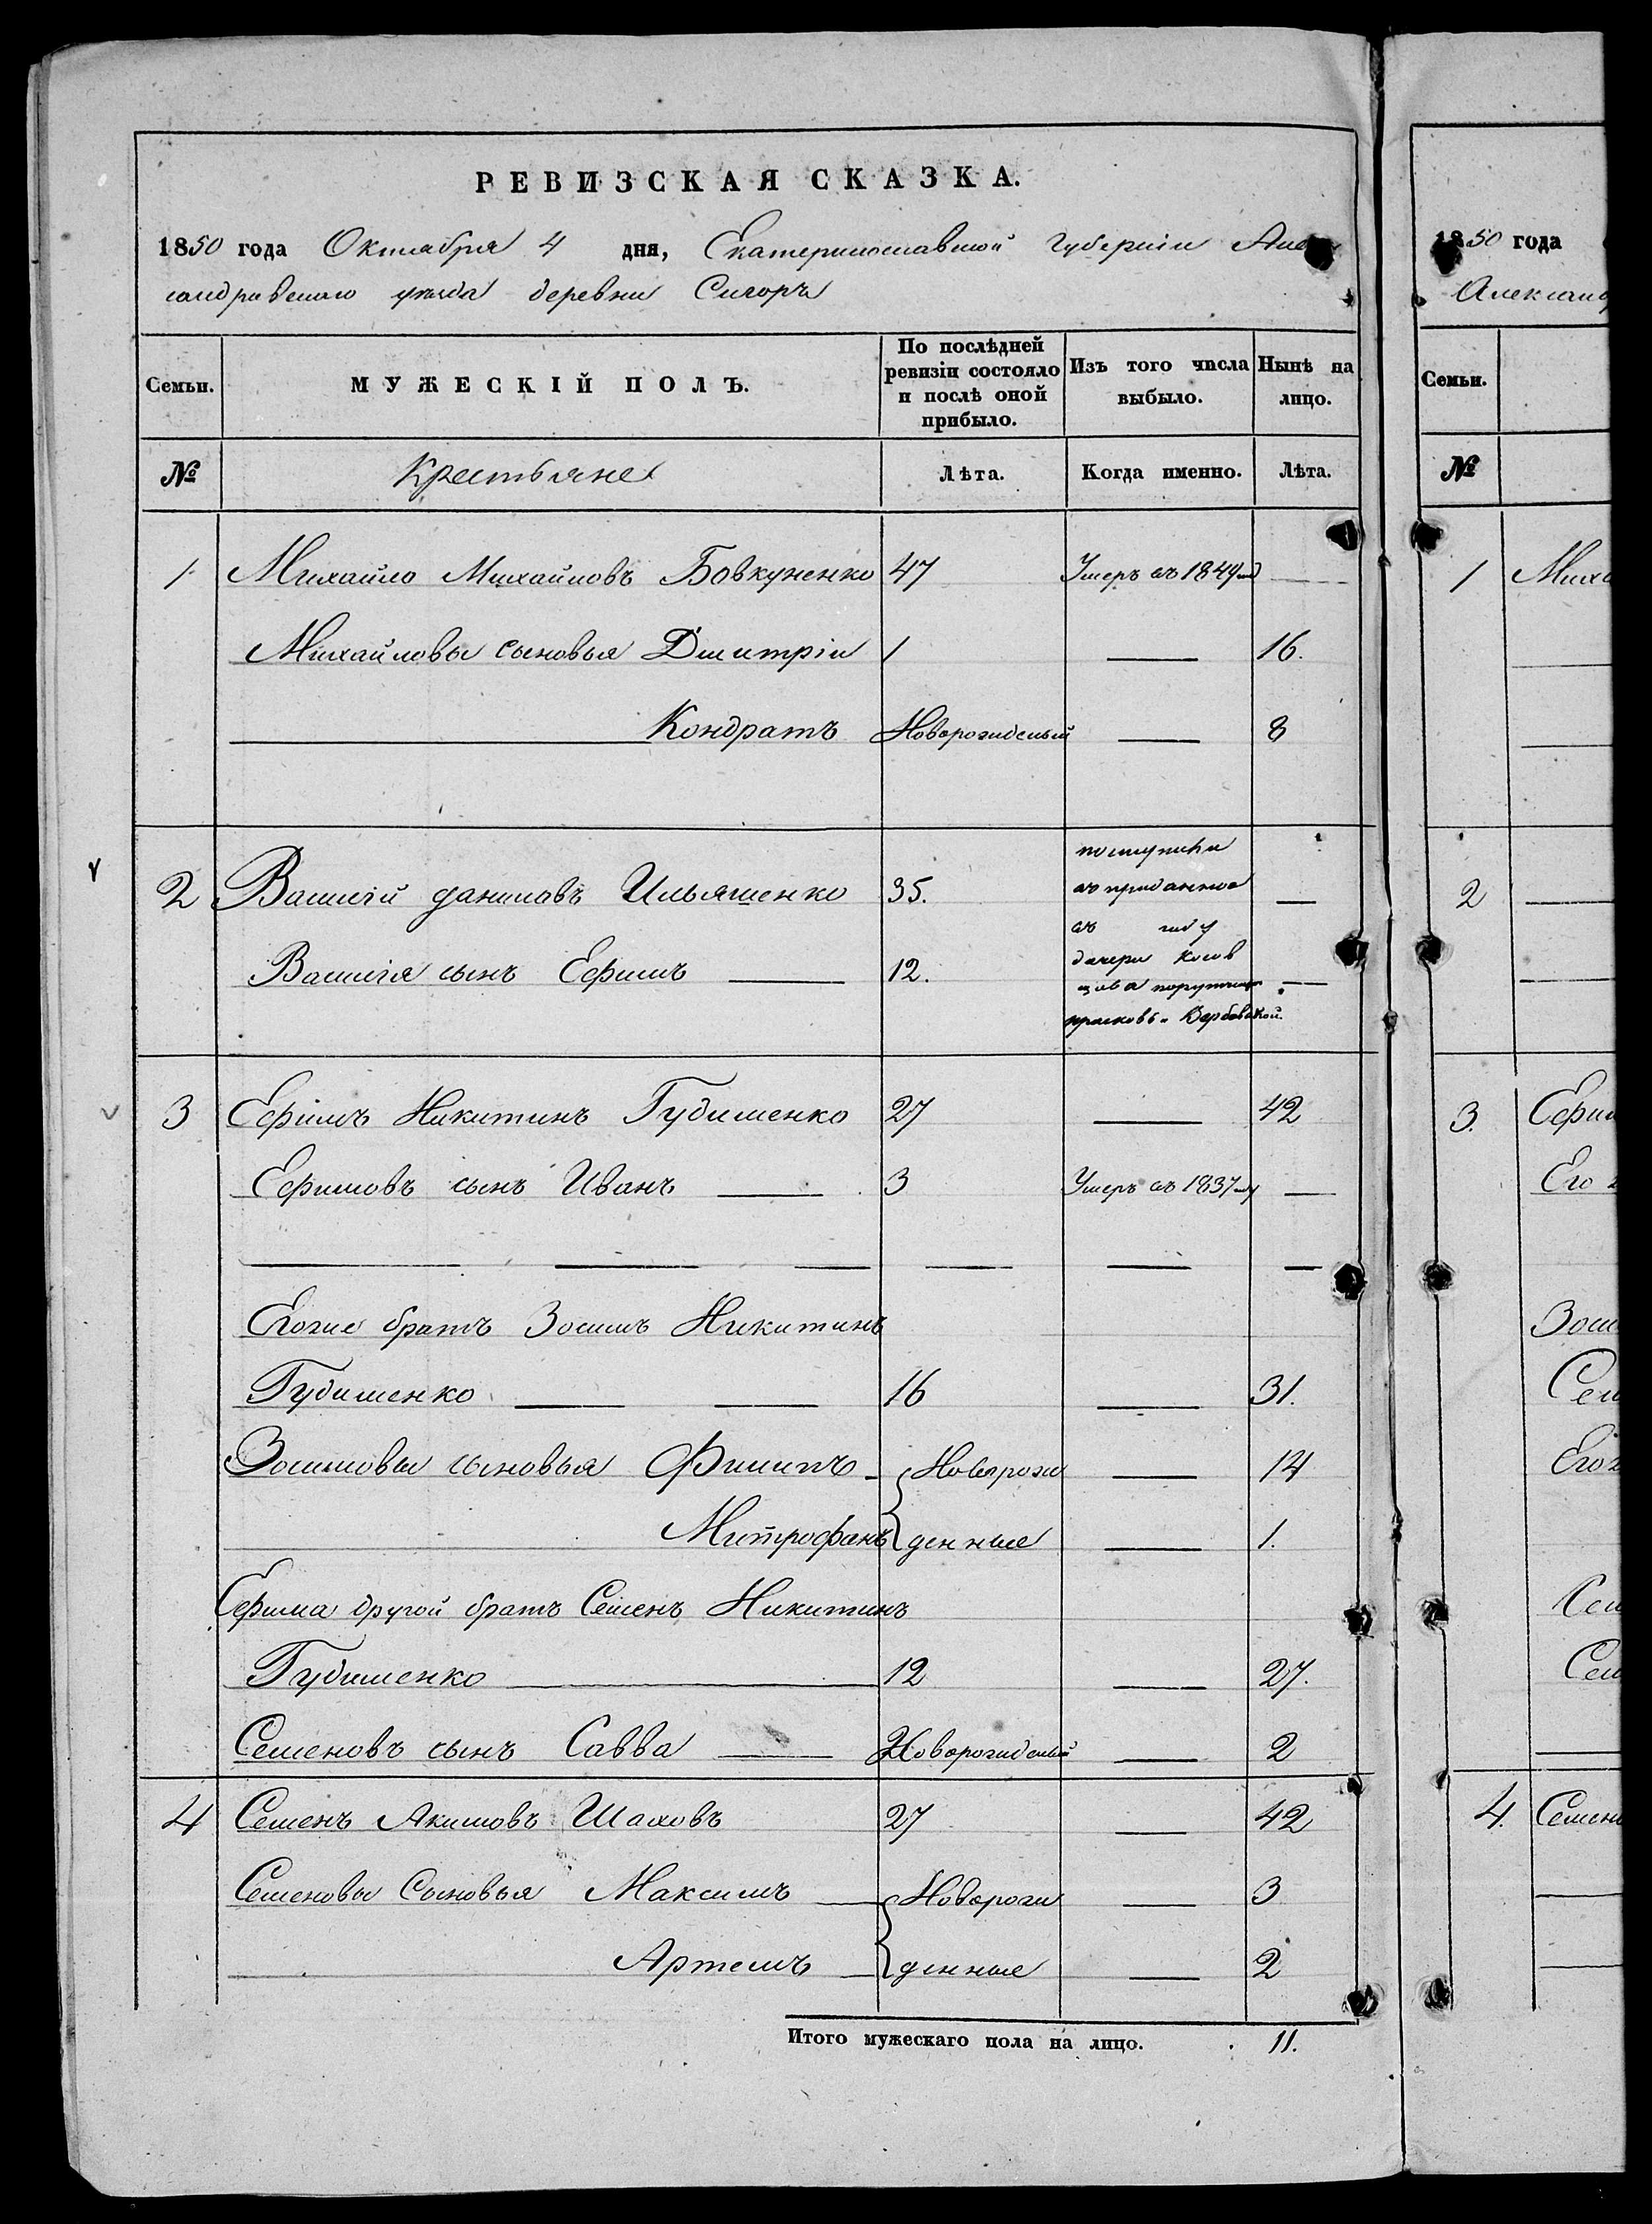 РЕВИЗСКАЯ СКАЗКА.
1850 года Октября 4 дня, Екатеринославской Губерніи Алек
сандровскаго уѣзда деревни
Семьи.
МУЖЕСКІЙ ПОЛЪ.
По послѣдней ревизіи состояло и послѣ оной прибыло.
Изъ того числа выбыло.
Нынѣ на лицо.
№ Крестьяне Лѣта. Когда именно. Лѣта.
1 Михайло Михайловъ Бовкуненко 47 Умеръ въ 1849 год
Михайловы сыновья Дмитріи 1 — 16.
Кондратъ Новорожденый — 8
2 Василій даниловъ Ильяшенко 35. —
Василія сынъ Ефимъ — 12. —
поступили
въ приданное
въ году
дочери
поручице
Вербовской.
3 Ефимъ Никитинъ Губишенко 27 — 42
Ефимовъ сынъ Иванъ — 3 Умеръ въ 1837 году —
Егоже братъ Зосимъ Никитинъ
Губишенко — — 16 — 31.
Зосимовы сыновья Филипъ Новорож — 14
Митрофанъ денные — 1.
Ефима другой братъ Семенъ Никитинъ
Губишенко 12 — 27.
Семеновъ сынъ Савва — Новорожденый — 2
4 Семенъ Акимовъ Шаховъ 27 — 42
Семеновы Сыновья Максимъ Новорож — 3
Артемъ денные — 2
Итого мужескаго пола на лицо. 11.
1850 года
Александ
Семьи.
№
1 Миха
2
3. Ефим
Его
Зоси
Сем
Егож
Сем
Сем
4. Семен